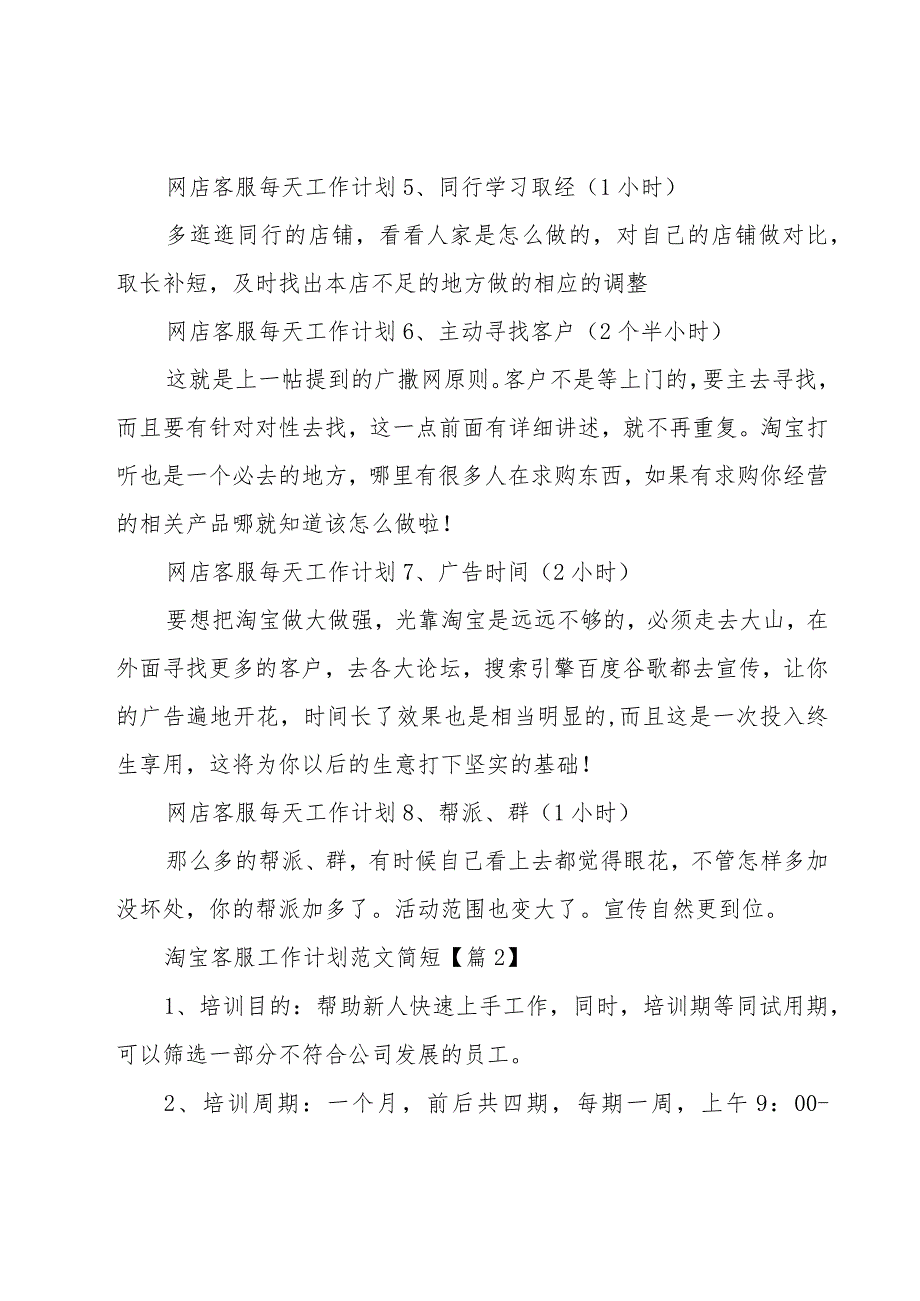 网店客服每天工作计划5、同行学习取经（1小时）
多逛逛同行的店铺，看看人家是怎么做的，对自己的店铺做对比，
取长补短，及时找出本店不足的地方做的相应的调整
网店客服每天工作计划6、主动寻找客户（2个半小时）
这就是上一帖提到的广撒网原则。客户不是等上门的，要主去寻找，
而且要有针对对性去找，这一点前面有详细讲述，就不再重复。淘宝打
听也是一个必去的地方，哪里有很多人在求购东西，如果有求购你经营
的相关产品哪就知道该怎么做啦！
网店客服每天工作计划7、广告时间（2小时）
要想把淘宝做大做强，光靠淘宝是远远不够的，必须走去大山，在
外面寻找更多的客户，去各大论坛，搜索引擎百度谷歌都去宣传，让你
的广告遍地开花，时间长了效果也是相当明显的,而且这是一次投入终
生享用，这将为你以后的生意打下坚实的基础！
网店客服每天工作计划8、帮派、群（1小时）
那么多的帮派、群，有时候自己看上去都觉得眼花，不管怎样多加
没坏处，你的帮派加多了。活动范围也变大了。宣传自然更到位。
淘宝客服工作计划范文简短【篇2】
1、培训目的：帮助新人快速上手工作，同时，培训期等同试用期，
可以筛选一部分不符合公司发展的员工。
2、培训周期：一个月，前后共四期，每期一周，上午9：00-